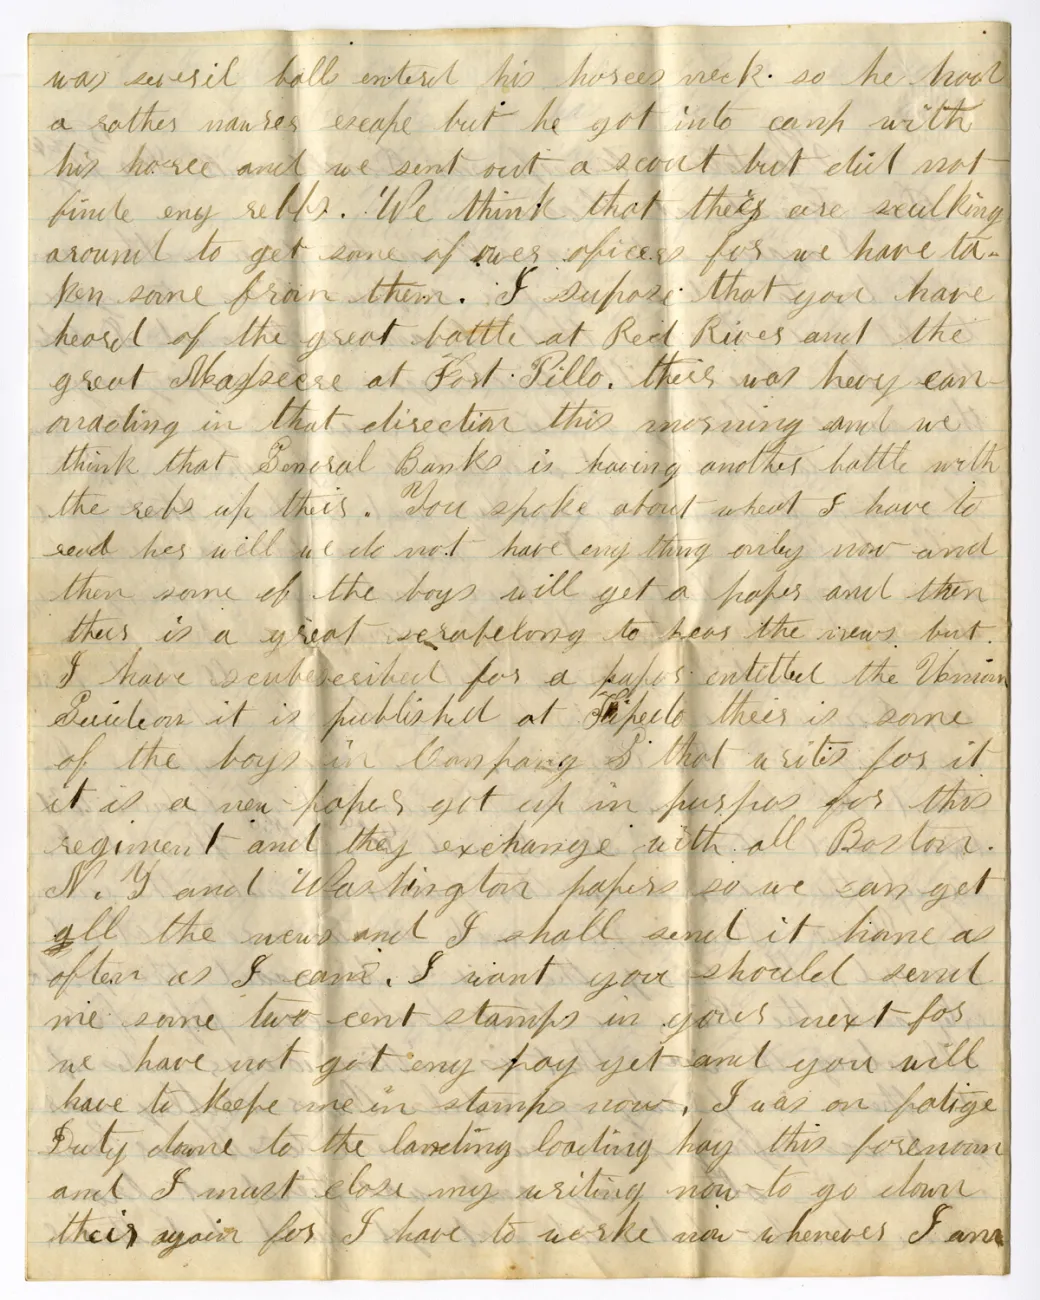 was severil ball enterd his horces neck. so he had
a rather narrer escape but he got into camp with
his horce and we sent out a scout but did not
finde eny rebbs. We think that their are sculking
around to get some of ower oficers for we have ta-
ken some from them. I supose that you have
heard of the great battle at Red River and the
great Masseccre at Fort Pillo. their was hevy can-
onading in that direction this morning and we
think that General Banks is having another battle with
the rebs up their. You spoke about what I have to
read her will we do not have eny thing onley now and
then some of the boys will get a paper and then
thur is a great scrabelong to hear the news but
I have scubscribed for a paper entitled the Union
Guideon it is published at the their is some
of the boys in Company that writes for it
it is a new paper got up in purpos for this
regiment and they exchange with all Boston.
N. Y and Washington papers so we can get
all the news and I shall send it home as
often as I can. I want you should send
me some two cent stamps in your next for
we have not got eny pay yet and you will
have to keepe me in stamps now. I was on fatige
Duty down to the landing loading hay this forenoon
and I must close my writing now to go down
their again for I have to worke now whenever I am